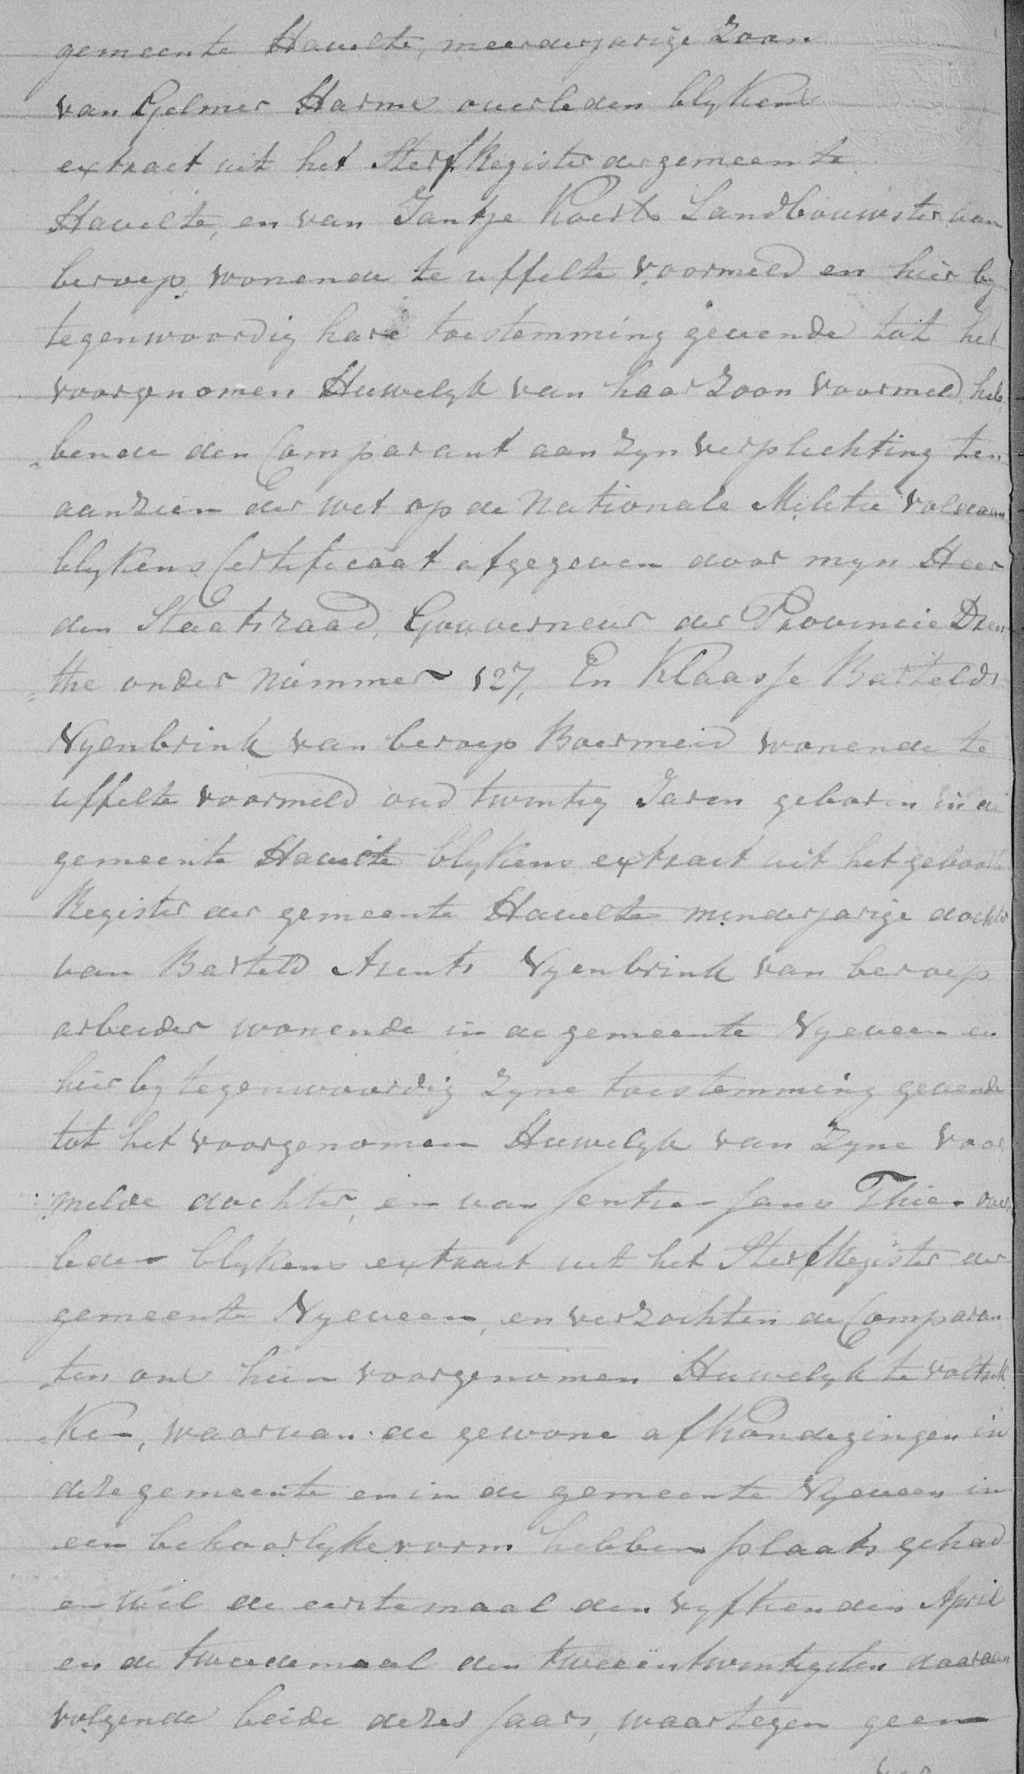 gemeente Havelte, meerderjarige Zoon
van Gelmer Harms overleden blykens
extract uit het Sterf Register der gemeente
Havelte, en van Jantje Koerts Landbouwster van
beroep, wonende te uffelte voormeld en hier by
tegenwoordig hare toestemming gevende tot het
voorgenomen Huwelyk van haar Zoon voormeld, heb,
bende den Comparant aan zyn verplichting ten
aanzien der wet op de Nationale Militie voldaan
blykens Certificaat afgegeven door myn Heer
den Staatsraad, Gouverneur der Provincie Dren
the onder Nummer 127, En Klaasje Bartelds
Nyenbrink van beroep Boermeid wonende te
uffelte voormeld oud twintig Jaren geboren in de
gemeente Havelte blykens extract uit het geboorte
Register der gemeente Havelte minderjarige dochter
van Barteld Arents Nyenbrink van beroep
arbeider wonende in de gemeente Nyeveen en
hier by tegenwoordig Zyne toestemming gevende
tot het voorgenomen Huwelyk van Zyne voor
melde dochter, en van Jentien Jans Thie over
leden blykens extract uit het Sterf Register der
gemeente Nyeveen, en verzochten de Comparan
ten om hun voorgenomen Huwelyk te voltrek
ken, waarvan de gewone afkondigingen in
deze gemeente en in de gemeente Nyeveen in
een behoorlyke vorm hebben plaats gehad
en wel de eerstemaal den vyftienden April
en de tweedemaal den tweeentwintigsten daaraan
volgende beide dezes Jaars, waartegen geen